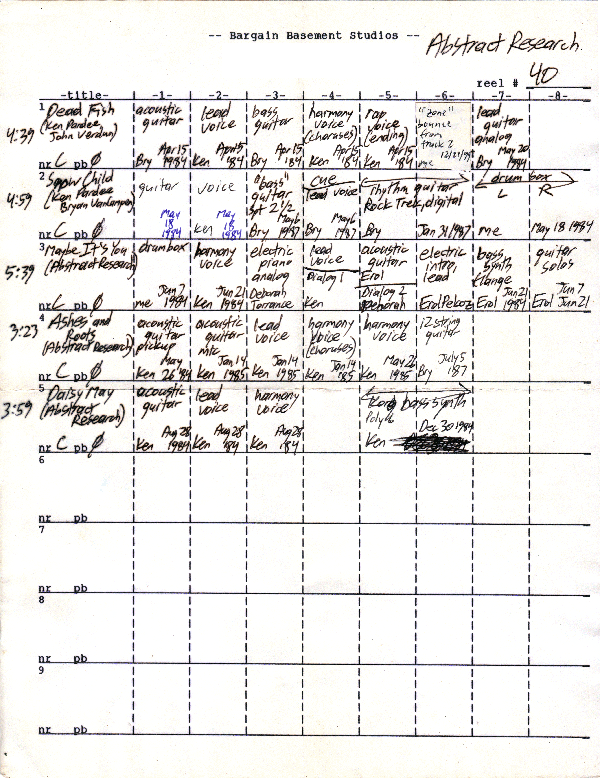 -- Bargain Basement Studios --
Abstract Research.
reel # 40
-title- -1- -2- -3- -4- -5- -6- -7- -8-
1 Dead Fish acoustic lead bass harmony rap "zone" lead
(Ken Pardee, guitar voice guitar voice voice bounce guitar
John Verdan) (choruses) (ending) from analog
4:39 track 2
Apr 15 Apr 15 Apr 15 Apr 15 Apr 15 May 20
nr C pb Ø Bry 1984 Ken '84 Bry '84 Ken '84 Ken '84 me 1984
2 Snow Child guitar voice "bass" cue rhythm guitar drum box
(Ken Pardee guitar lead voice Rock Trek, digital L R
4:59 May 18 1984 May 18 1984 May 6 May 6
nr C pb Ø Ken Bry 1987 Bry 1987 Bry Jan 31 1987 me May 18 1984
3 Maybe It's You drumbox harmony electric lead acoustic electric bass guitar
(Abstract Research) voice piano voice guitar intro, synth solos
5:39 analog Dialog 1 Erol lead flange
Jun 7 Jun 21 Deborah Dialog 2 Jun 21 Jun 7
nr C pb Ø me 1984 Ken 1984 Torrance Ken Deborah Erol Pekoz Erol 1984 Erol Jun 21
4 Ashes and acoustic acoustic lead harmony harmony 12 string
Roots guitar guitar voice voice voice guitar
3:23 (Abstract Research) pickup mic (choruses)
May Jan 14 Jan 14 Jan 14 May 26 July 5
nr C pb Ø Ken 26 '84 Ken 1985 Ken 1985 Ken '85 Ken 1985 Bry '87
5 Daisy May acoustic lead harmony Korg bass synth
3:59 (Abstract guitar voice voice Poly 6
Research) Aug 28 Aug 28 Aug 28 Dec 30 1984
nr C pb Ø Ken 1984 Ken '84 Ken '84 Ken
6
nr pb
7
nr pb
8
nr pb
9
nr pb